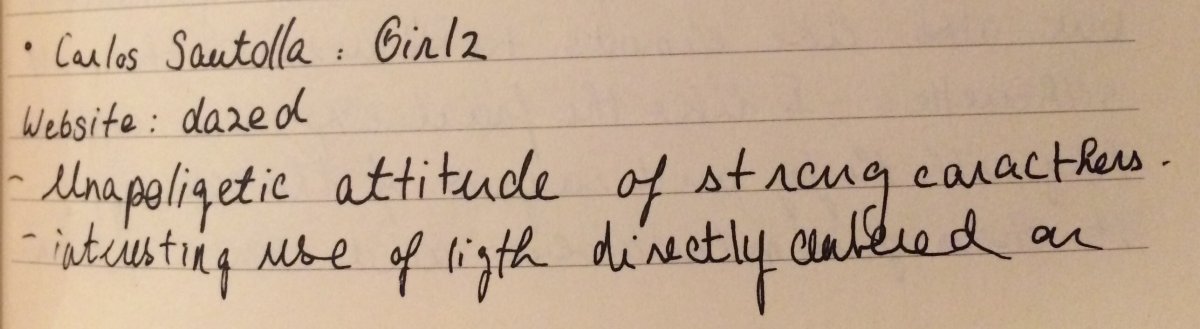 • Carlos Santolla : Girlz
Website: dazed
- Unapoligetic attitude of strong caracthers.
- interesting use of ligth directly centered on